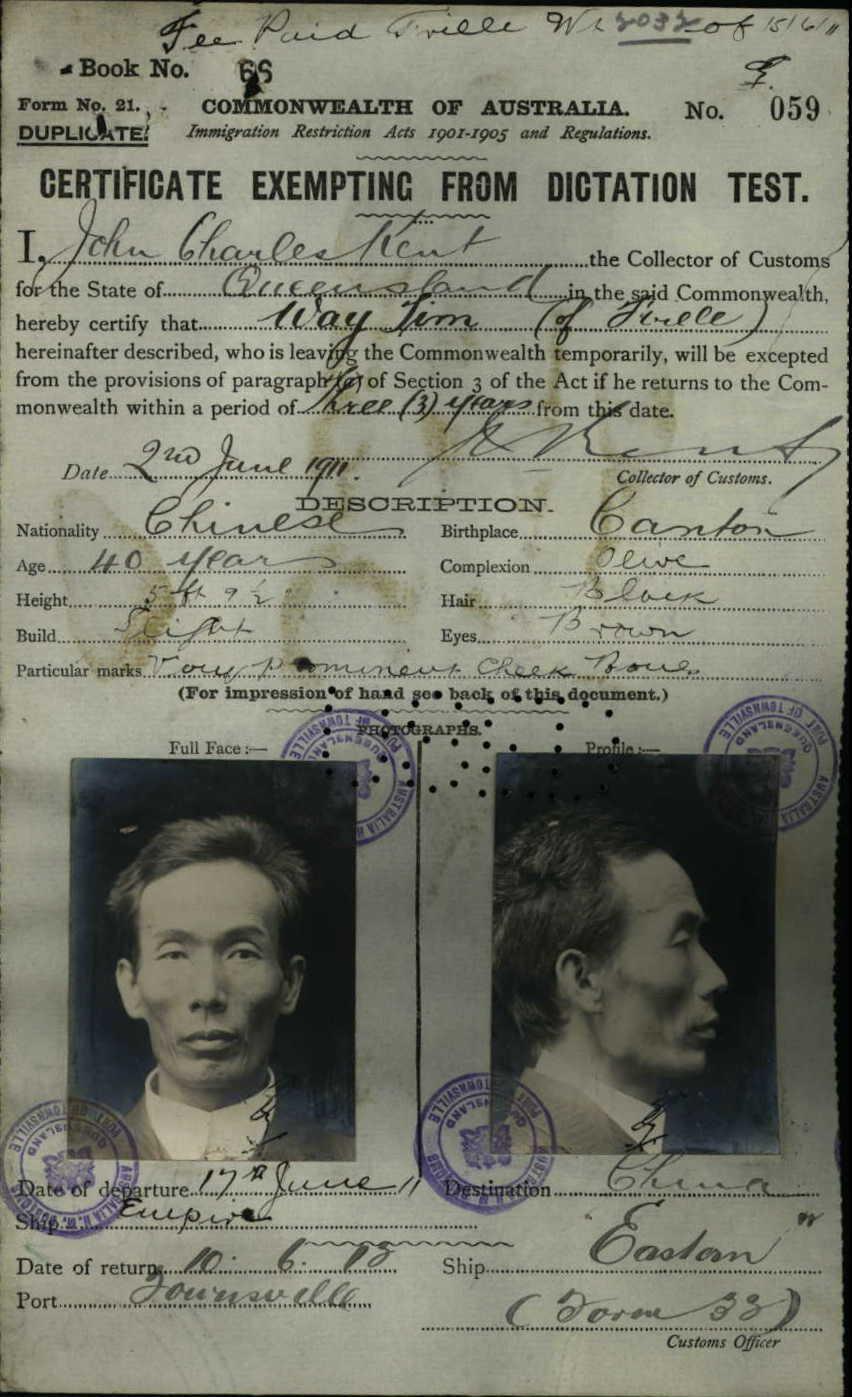 Fee Paid T'ville 2032 of 15/6/11
Book No. 66
Form No. 21. COMMONWEALTH OF AUSTRALIA. No. 059
DUPLICATE. Immigration Restriction Acts 1901-1905 and Regulations.
CERTIFICATE EXEMPTING FROM DICTATION TEST.
I, John Charles Kent the Collector of Customs
for the State of Queensland in the said Commonwealth,
hereby certify that Way (of T'ville)
hereinafter described, who is leaving the Commonwealth temporarily, will be excepted
from the provisions of paragraph (a) of Section 3 of the Act if he returns to the Com-
monwealth within a period of three (3) years from this date.
Date 2nd June 1911. Kent
Collector of Customs.
DESCRIPTION.
Nationality Chinese Birthplace Canton
Age 40 years Complexion Olive
Height 5 ft 9 ½ Hair Black
Build Slight Eyes Brown
Particular marks Very prominent Cheek Bones
(For impression of hand see back of this document.)
PHOTOGRAPHS.
Full Face :— Profile :—
PORT OF TOWNSVILLE
QUEENSLAND
AUSTRALIA
PORT OF TOWNSVILLE
QUEENSLAND
AUSTRALIA
PORT OF TOWNSVILLE
QUEENSLAND
PORT OF TOWNSVILLE
QUEENSLAND
Date of departure 17th June 11 Destination China
Ship Empire
Date of return 10. 6. 13 Ship "Eastern"
Port Townsville
(Form 33)
Customs Officer